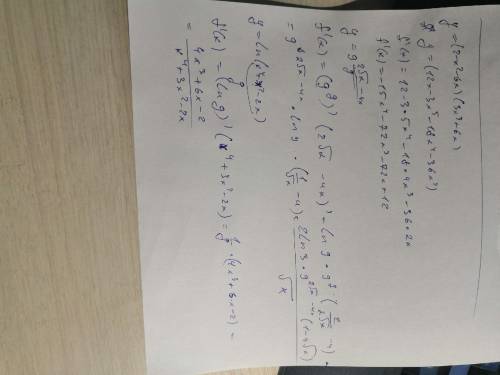 y = (2-x²-6x)(3x³+6x)
y = (12x-3x⁵-18x⁴-36x²)
f'(x) = 12-3·5x⁴-18·4x³-36·2x
f'(x) = -15x⁴-72x³-72x+12
y = 9^(2√x-4x)
f'(x) = (9^g)' (2√x - 4x)' = ln 9 · 9^g · (2/(2√x) - 4) =
= 9^(2√x-4x) · ln 9 · (1/√x - 4) = 2ln3 · 9^(2√x-4x) (1-4√x) / √x
f'(x) = (ln g)' (x⁴+3x²-2x)' = 1/g · (4x³+6x-2) =
= (4x³+6x-2) / (x⁴+3x²-2x)